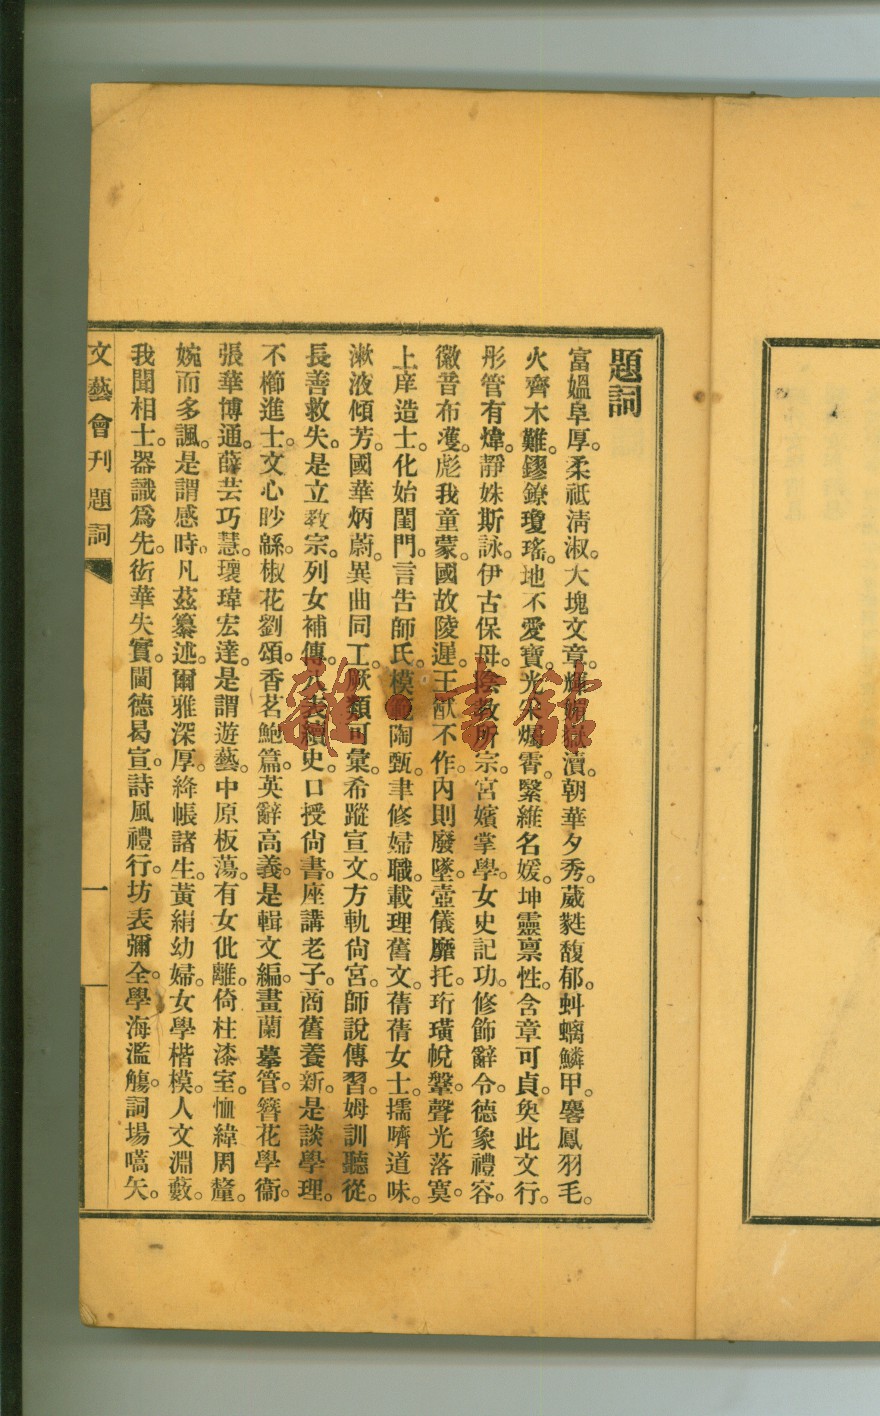 題詞
富媼阜厚。柔祇淸淑。大塊文章。煇媚嶽瀆。朝華夕秀。葳蕤馥郁。蚪螭鱗甲。麐鳳羽毛。
火齊木難。鏐鐐瓊瑤。地不愛寶。光采爥霄。緊維名媛。坤靈禀性。含章可貞。奐此文行。
彤管有煒。靜姝斯詠。伊古保母。陰敎所宗。宮嬪掌學。女史記功。修飾辭令。德象禮容。
徽音布濩。彪我童蒙。國故陵遲。王猷不作。內則廢墜。壼儀靡托。珩璜帨鞶。聲光落寞。
上庠造士。化始閨門。言告師氏。模範陶甄。聿修婦職。載理舊文。蒨蒨女士。擩嚌道味。
漱液傾芳。國華炳蔚。異曲同工。厥類可彙。希蹤宣文。方軌尙宮。師說傳習。姆訓聽從。
長善救失。是立敎宗。列女補傳。八表續史。口授尙書。座講老子。商舊養新。是談學理。
不櫛進士。文心眇緜。椒花劉頌。香茗鮑篇。英辭高義。是輯文編。畫蘭摹管。簪花學衞。
張華博通。薛芸巧慧。瓌瑋宏達。是謂遊藝。中原板蕩。有女仳離。倚柱漆室。恤緯周釐。
婉而多諷。是謂感時。凡茲纂述。爾雅深厚。絳帳諸生。黃絹幼婦。女學楷模。人文淵藪。
我聞相士。器識爲先。衒華失實。閫德曷宣。詩風禮行。坊表彌全。學海濫觴。詞場嚆矢。
文藝會刊題詞
一
雜·書館